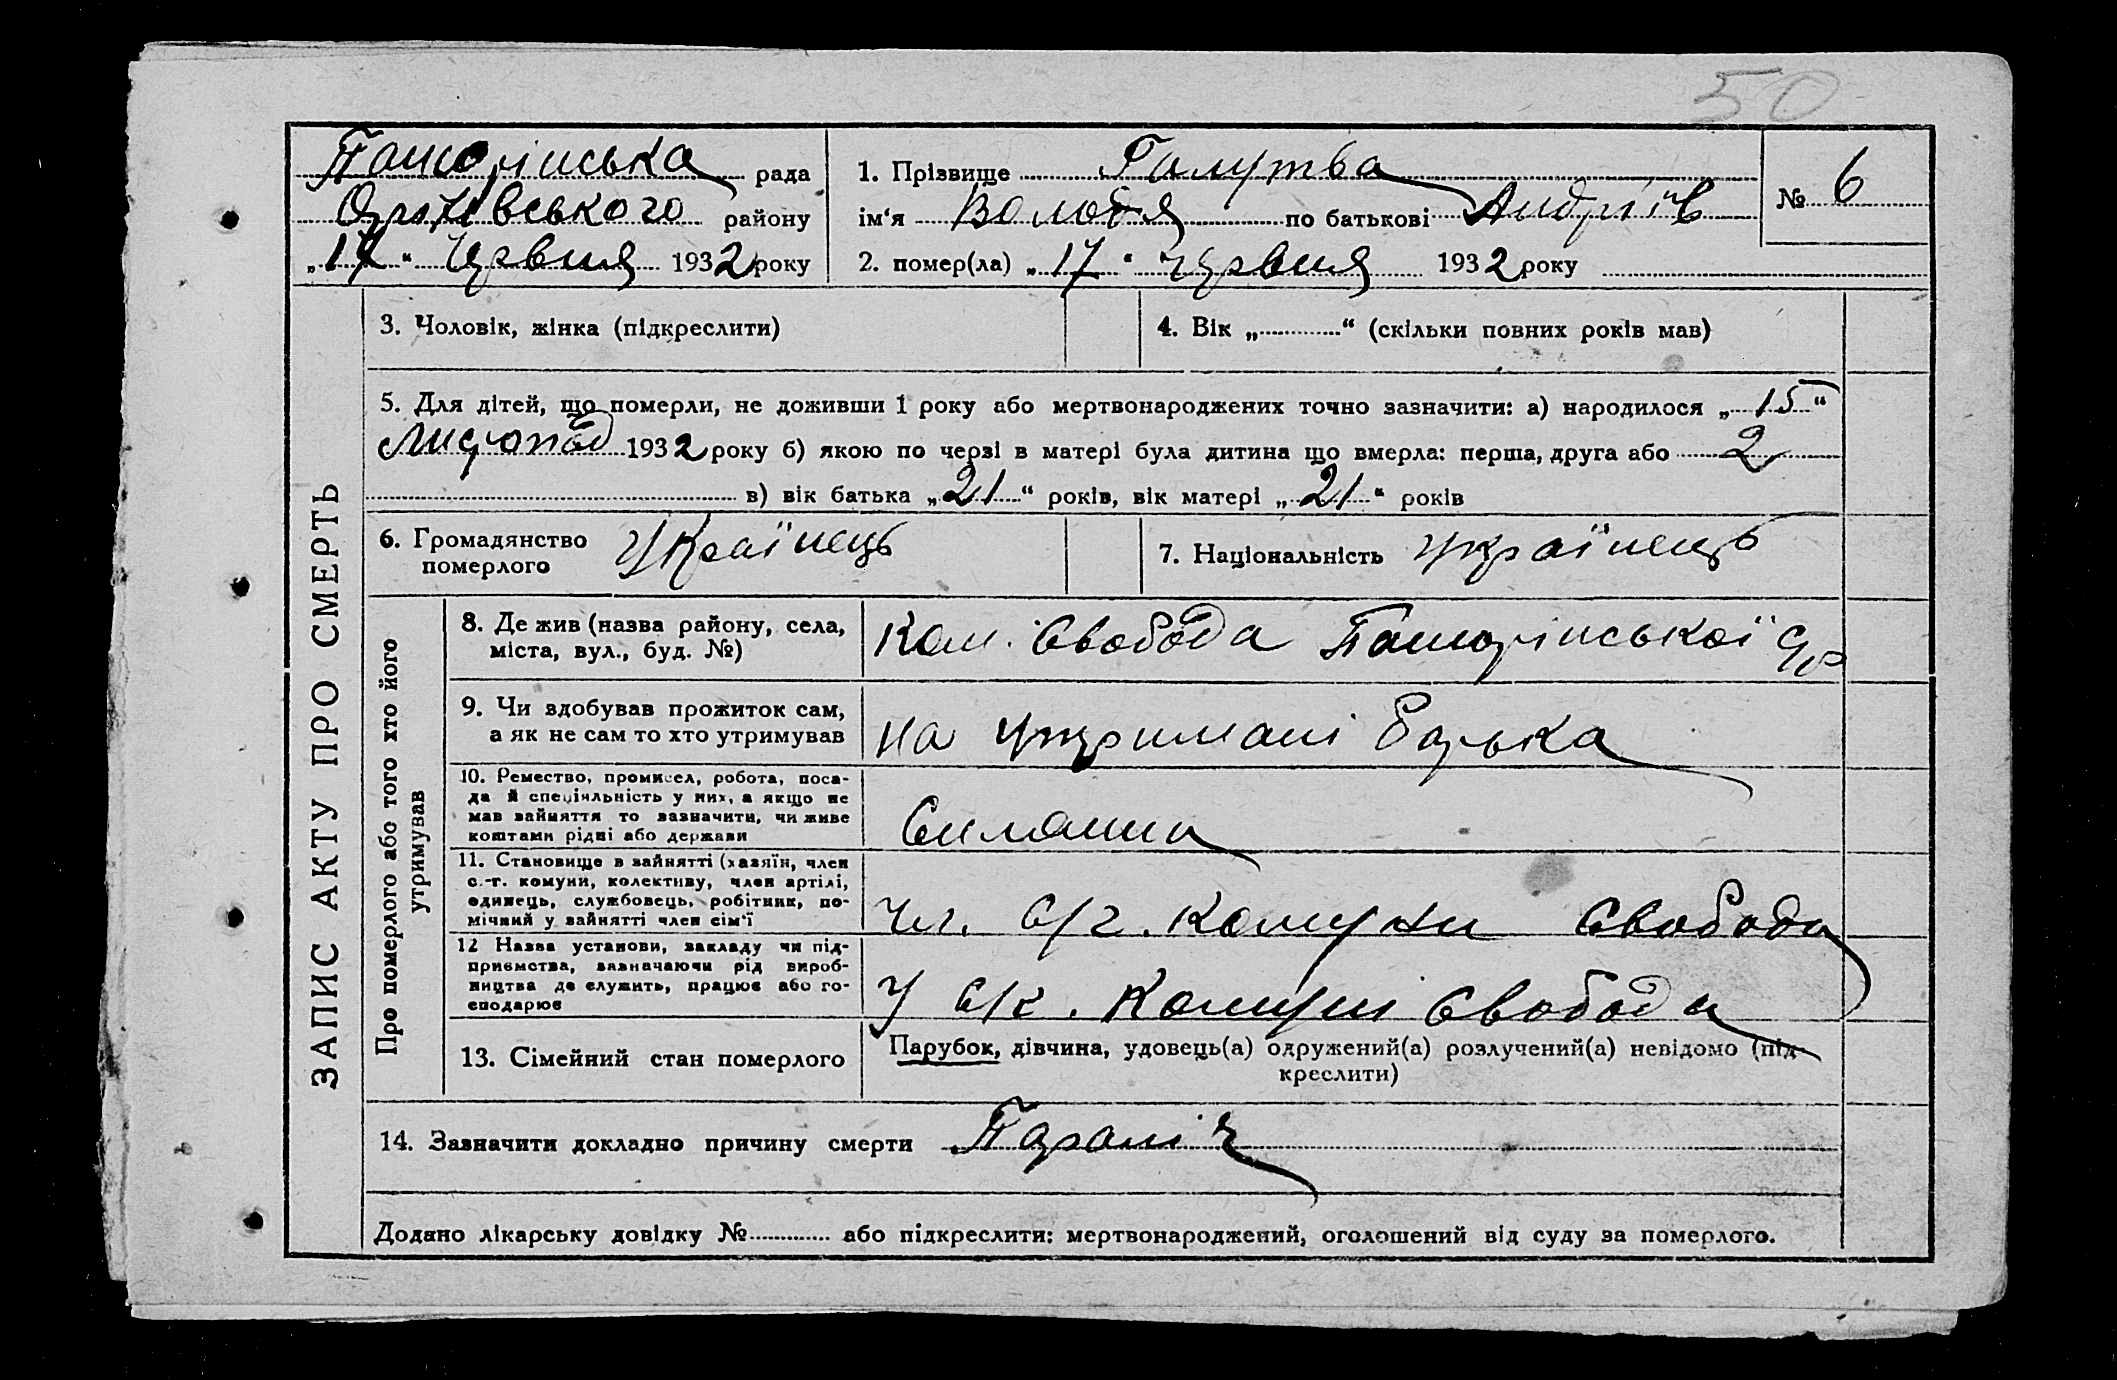 50
рада
1. Прізвище Галутва
№ 6
району
ім‘я Володя по батькові Андріїв
„17“ Червня 1932 року
2. помер(ла) „17“ червня 1932 року
ЗАПИС АКТУ ПРО СМЕРТЬ
3. Чоловік, жінка (підкреслити)
4. Вік „......“ (скільки повних років мав)
5. Для дітей, що померли, не доживши 1 року або мертвонароджених точно зазначити: а) народилося „15“
Листопад 1932 року б) якою по черзі в матері була дитина що вмерла: перша, друга або 2
в) вік батька „21“ років, вік матері „21“ років
6. Громадянство
померлого
Українець
7. Національність українець
Про померлого або того хто його
утримував
8. Де жив (назва району, села,
міста, вул., буд. №)
Ком. Свобода
9. Чи здобував прожиток сам,
а як не сам то хто утримував
на утримані батька
10. Ремество, промисел, робота, поса-
да й спеціяльність у них, а якщо не
мав зайняття то зазначити, чи живе
коштами рідні або держави
11. Становище в зайнятті (хазяїн, член
с.-г. комуни, колективу, член артілі,
одинець, службовець, робітник, по-
мічний у зайнятті член сім'ї
чл. с/г. комуни Свобода
12 Назва установи, закладу чи під-
приємства, зазначаючи рід вироб-
ництва де служить, працює або го-
сподарює
У с/к. Комуні Свобода
13. Сімейний стан померлого
Парубок, дівчина, удовець(а) одружений(а) розлучений(а) невідомо (під-
креслити)
14. Зазначити докладно причину смерти Параліч
Додано лікарську довідку №...... або підкреслити: мертвонароджений, оголошений від суду за померлого.